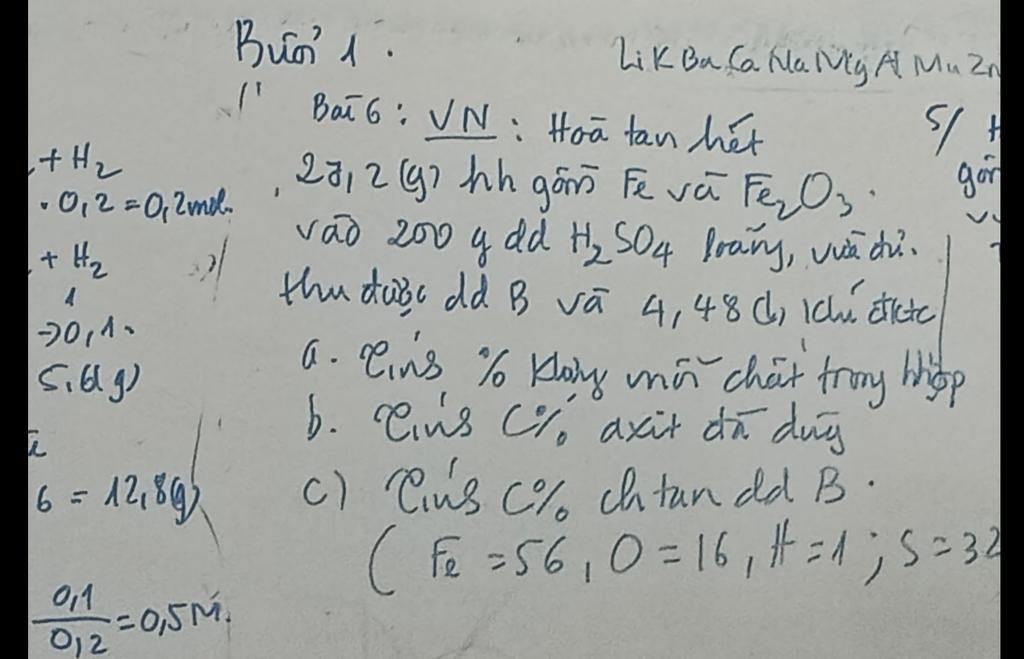 Buổi 1.
Li K Ba Ca Na Mg Al Mn Zn
Bài 6: VN: Hoà tan hết
27,2 (g) hh gồm Fe và Fe2O3.
vào 200 g dd H2SO4 loãng, vừa đủ.
thu được dd B và 4,48 (l) khí đktc
a. Tính % klượng mỗi chất trong hhợp
b. Tính C% axit đã dùng
c) Tính C% ch tan dd B.
(Fe = 56, O = 16, H = 1; S = 32
+ H2
. 0,2 = 0,2 mol.
+ H2
1
→ 0,1.
5,6 (g)
6 = 12,8 (g)
0,1
/0,2 = 0,5 M.
5/
gồm